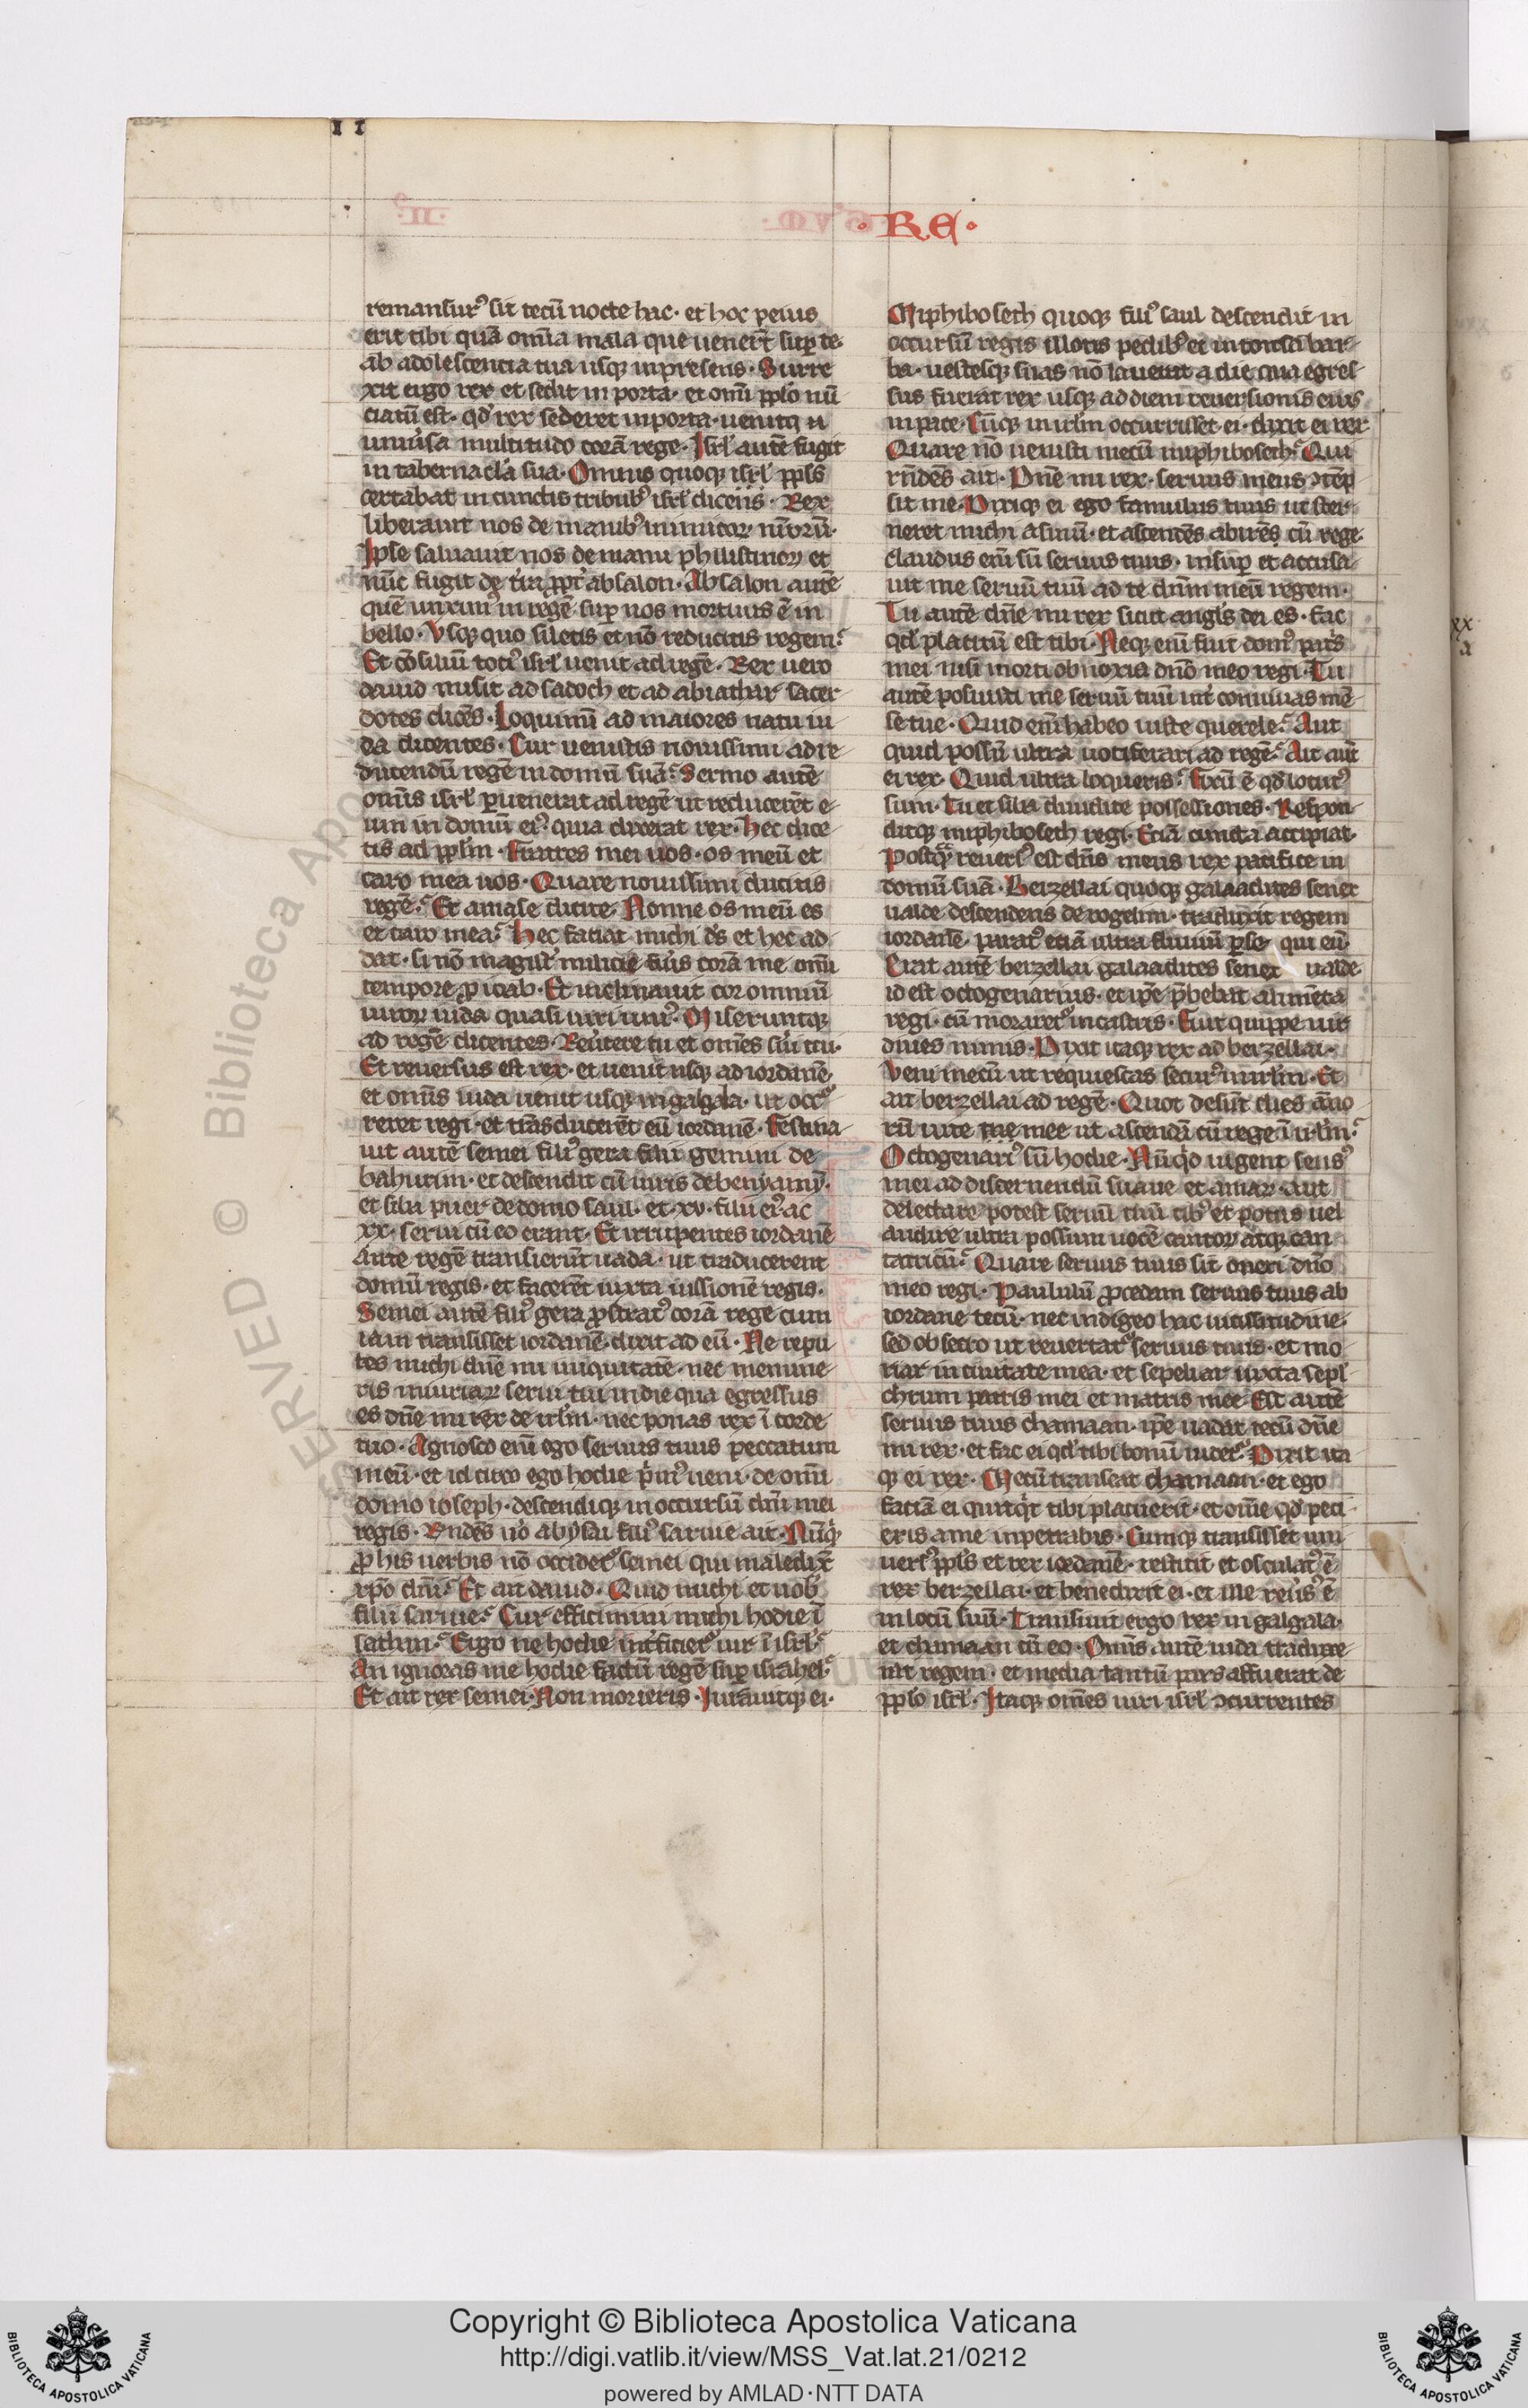 · RE ·
remansur⁹ sit tecū nocte hac · et hoc peius
erit tibi quā om̄ia mala que uener̄t sup̱ te
ab adolescentia tua usq; in presens · Surre
xit ergo rex et sedit in porta · et om̄i pplo nū
ciatū est · qđ rex sederet in porta · uenitq;
uniuˀsa multitudo corā rege · Isrl̄ autē fugit
in tabernacl̄a sua · Omnis quoq; isrl̄ ppl̄s
certabat in cunctis tribub⁹ isrl̄ dicens · Rex
liberauit nos de manib⁹ inimicoꝝ nr̄orū ·
Ipse saluauit nos de manu philistinoꝝ et
nūc fugit de t̄ra ppt̄ absalon · Absalon autē
quē unxim⁹ in regē sup̱ nos mortuus ē in
bello · Vsq; quo siletis et nō reducitis regem?
Et cōsiliū toti⁹ isrl̄ uenit ad regē · Rex uero
dauid misit ad sadoch et ad abiathar sacer
dotes dicēs · Loquimī ad maiores natu iu
da dicentes · Cur uenistis nouissimi ad re
ducendū regē in domū suā? Sermo autē
om̄is isrl̄ puenerat ad regē ut reducerēt e
um in domū ei⁹ · quia dixerat rex · Hec dice
tis ad pplm̄ · Fratres mei uos · os meū et
caro mea uos · Quare nouissimi ducitis
regē? Et amase dicite · Nonne os meū es
et caro mea? Hec faciat michi đs et hec ad
dat · si nō magist̄ milicie fuis corā me omī
tempore ꝓ ioab · Et inclinauit cor omniū
uiroꝝ iuda quasi uiri uni⁹ · Miseruntq;
ad regē dicentes · Reutere tu et om̄es sui tui ·
Et reuersus est rex · et uenit usq; ad iordanē
et om̄is iuda uenit usq; in galgala · ut occ²
reret regi · et trāsducerēt eū iordanē · Festina
uit autē semei fili⁹ gera filii gemini de
bahurim · et descendit cū uiris de benyamȳ ·
et siba puer de domo saul · et · xv · filii ei⁹ · ac
xx · serui cū eo erant · Et irrupentes iordanē
ante regē transierūt uada · ut traducerent
domū regis · et facerēt iuxta iussionē regis ·
Semei autē fili⁹ gera ꝓstrat⁹ corā rege cum
iam transisset iordanē · dixit ad eū · Ne repu
tes michi dn̄e mi iniquitatē · nec memine
ris iniuriaꝝ serui tui in die qua egressus
es dn̄e mi rex de irlm̄ · nec ponas rex ī corde
tuo · Agnosco eni ego seruus tuus peccatum
meū · et idcirco ego hodie prim⁹ ueni · de omī
domo ioseph · descendiq; in occursū dn̄i mei
regis · Rn̄dēs uo abysai fili⁹ saruie ait · Nūq̇
ꝓ his uerbis nō occidet² semei qui maledix̄
xp̄o dn̄i? Et ait dauid · Quid michi et uob̄
filii saruie? Cur efficimini michi hodie ī
sathan? Ergo ne hodie int̄ficiet² uir ī isrl̄?
An ignoras me hodie factū regē sup̱ israhel?
Et ait rex semei · Non morieris · Iurauitq; ei ·
Miphiboseth quoq; fili⁹ saul descendit in
occursū regis illotis pedib⁹ et intonsa bar
ba · uestesq; suas nō lauerat a die qua egres
sus fuerat rex usq; ad diem reuersionis eius
in pace · Cūq; in irlm̄ occurrisset ei · dixit ei rex
Quare nō uenisti mecū miphiboseth? Qui
rn̄dēs ait · Dn̄e mi rex · seruus meus ꝯtēp
sit me · Dixiq; ei ego famulus tuus ut ster
neret michi asinū · et ascendēs abirē cū rege
claudus eni sū seruus tuus · insup̱ et accusa
uit me seruū tuū ad te dn̄m meū regem ·
Tu autē dn̄e mi rex sicut angl̄s dei es · fac
qđ placitū est tibi · Neq; eni fuit dom⁹ pat̄s
mei nisi morti obnoxia dn̄o meo regi · Tu
autē posuisti me seruū tuū int̄ conuiuas mē
se tue · Quid eni habeo iuste querele? Aut
quid possū ultra uociferari ad regē? Ait aut̄
ei rex · Quid ultra loqueris? fixū ē qđ locut⁹
sum · Tu et siba diuidite possessiones · Respon
ditq; miphiboseth regi · Etiā cuncta accipiat ·
Postq̄ reuers⁹ est dn̄s meus rex pacifice in
domū suā · Berzellai quoq; galaadites senex
ualde descendens de rogelim · traduxit regem
iordanē · parat⁹ etiā ultra fluuiū p̱seqi eū ·
Erat autē berzellai galaadites senex ualde
id est octogenarius · et ip̄e p̄bebat alimēta
regi · cū moraret² in castris · Fuit quippe uir
diues nimis · Dixit itaq; rex ad berzellai ·
Veni mecū ut requiescas secur⁹ in irlm̄ · Et
ait berzellai ad regē · Quot desūt dies āno
rū uite mee ut ascendā cū rege ī irlm̄?
Octogenari⁹ sū hodie · Nūqđ uigent sens⁹
mei ad discernendū suaue et amaꝝ · aut
delectare potest seruū tuū cib⁹ et potus uel
audire ultra possum uocē cantoꝝ atq; can
tatricū? Quare seruus tuus sit oneri dn̄o
meo regi · Paululū ꝓcedam seruus tuus ab
iordane tecū · nec indigeo hac uicissitudine
sed obsecro ut reuertar² seruus tuus · et mo
riar in ciuitate mea · et sepeliar iuxta sepl̄
chrum patris mei et matris mee · Est autē
seruus tuus chamaan · ip̄e uadat tecū dn̄e
mi rex · et fac ei qđ tibi bonū uidet² · Dixit ita
q; ei rex · Mecū transeat chamaan · et ego
faciā ei quicq̇d tibi placuerit · et om̄e qđ peti
eris a me inpetrabis · Cumq; transisset uni
uers⁹ ppl̄s et rex iordanē · restitit · et osculat⁹ ē
rex berzellai · et benedixit ei · et ille reūs⁹ ē
in locū suū · Transiuit ergo rex in galgala ·
et chamaan cū eo · Om̄is autē iuda traduxe
rat regem · et media tantū pars affuerat de
pplo isrl̄ · Itaq; om̄es uiri isrl̄ ꝯcurrentes
Biblioteca Apo
SERVED ©
Copyright © Biblioteca Apostolica Vaticana
http://digi.vatlib.it/view/MSS_Vat.lat.21/0212
powered by AMLAD·NTT DATA
BIBLIOTECA APOSTOLICA VATICANA
BIBLIOTECA APOSTOLICA VATICANA